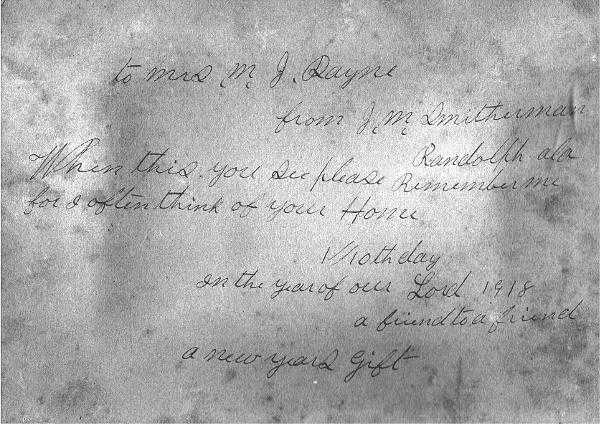 to mrs M, J, Rayne
from J, M, Smitherman
Randolph ala
When this you see please Remember me
for I often think of your Home
in the year of our Lord 1918
a friend to a friend
a new years Gift